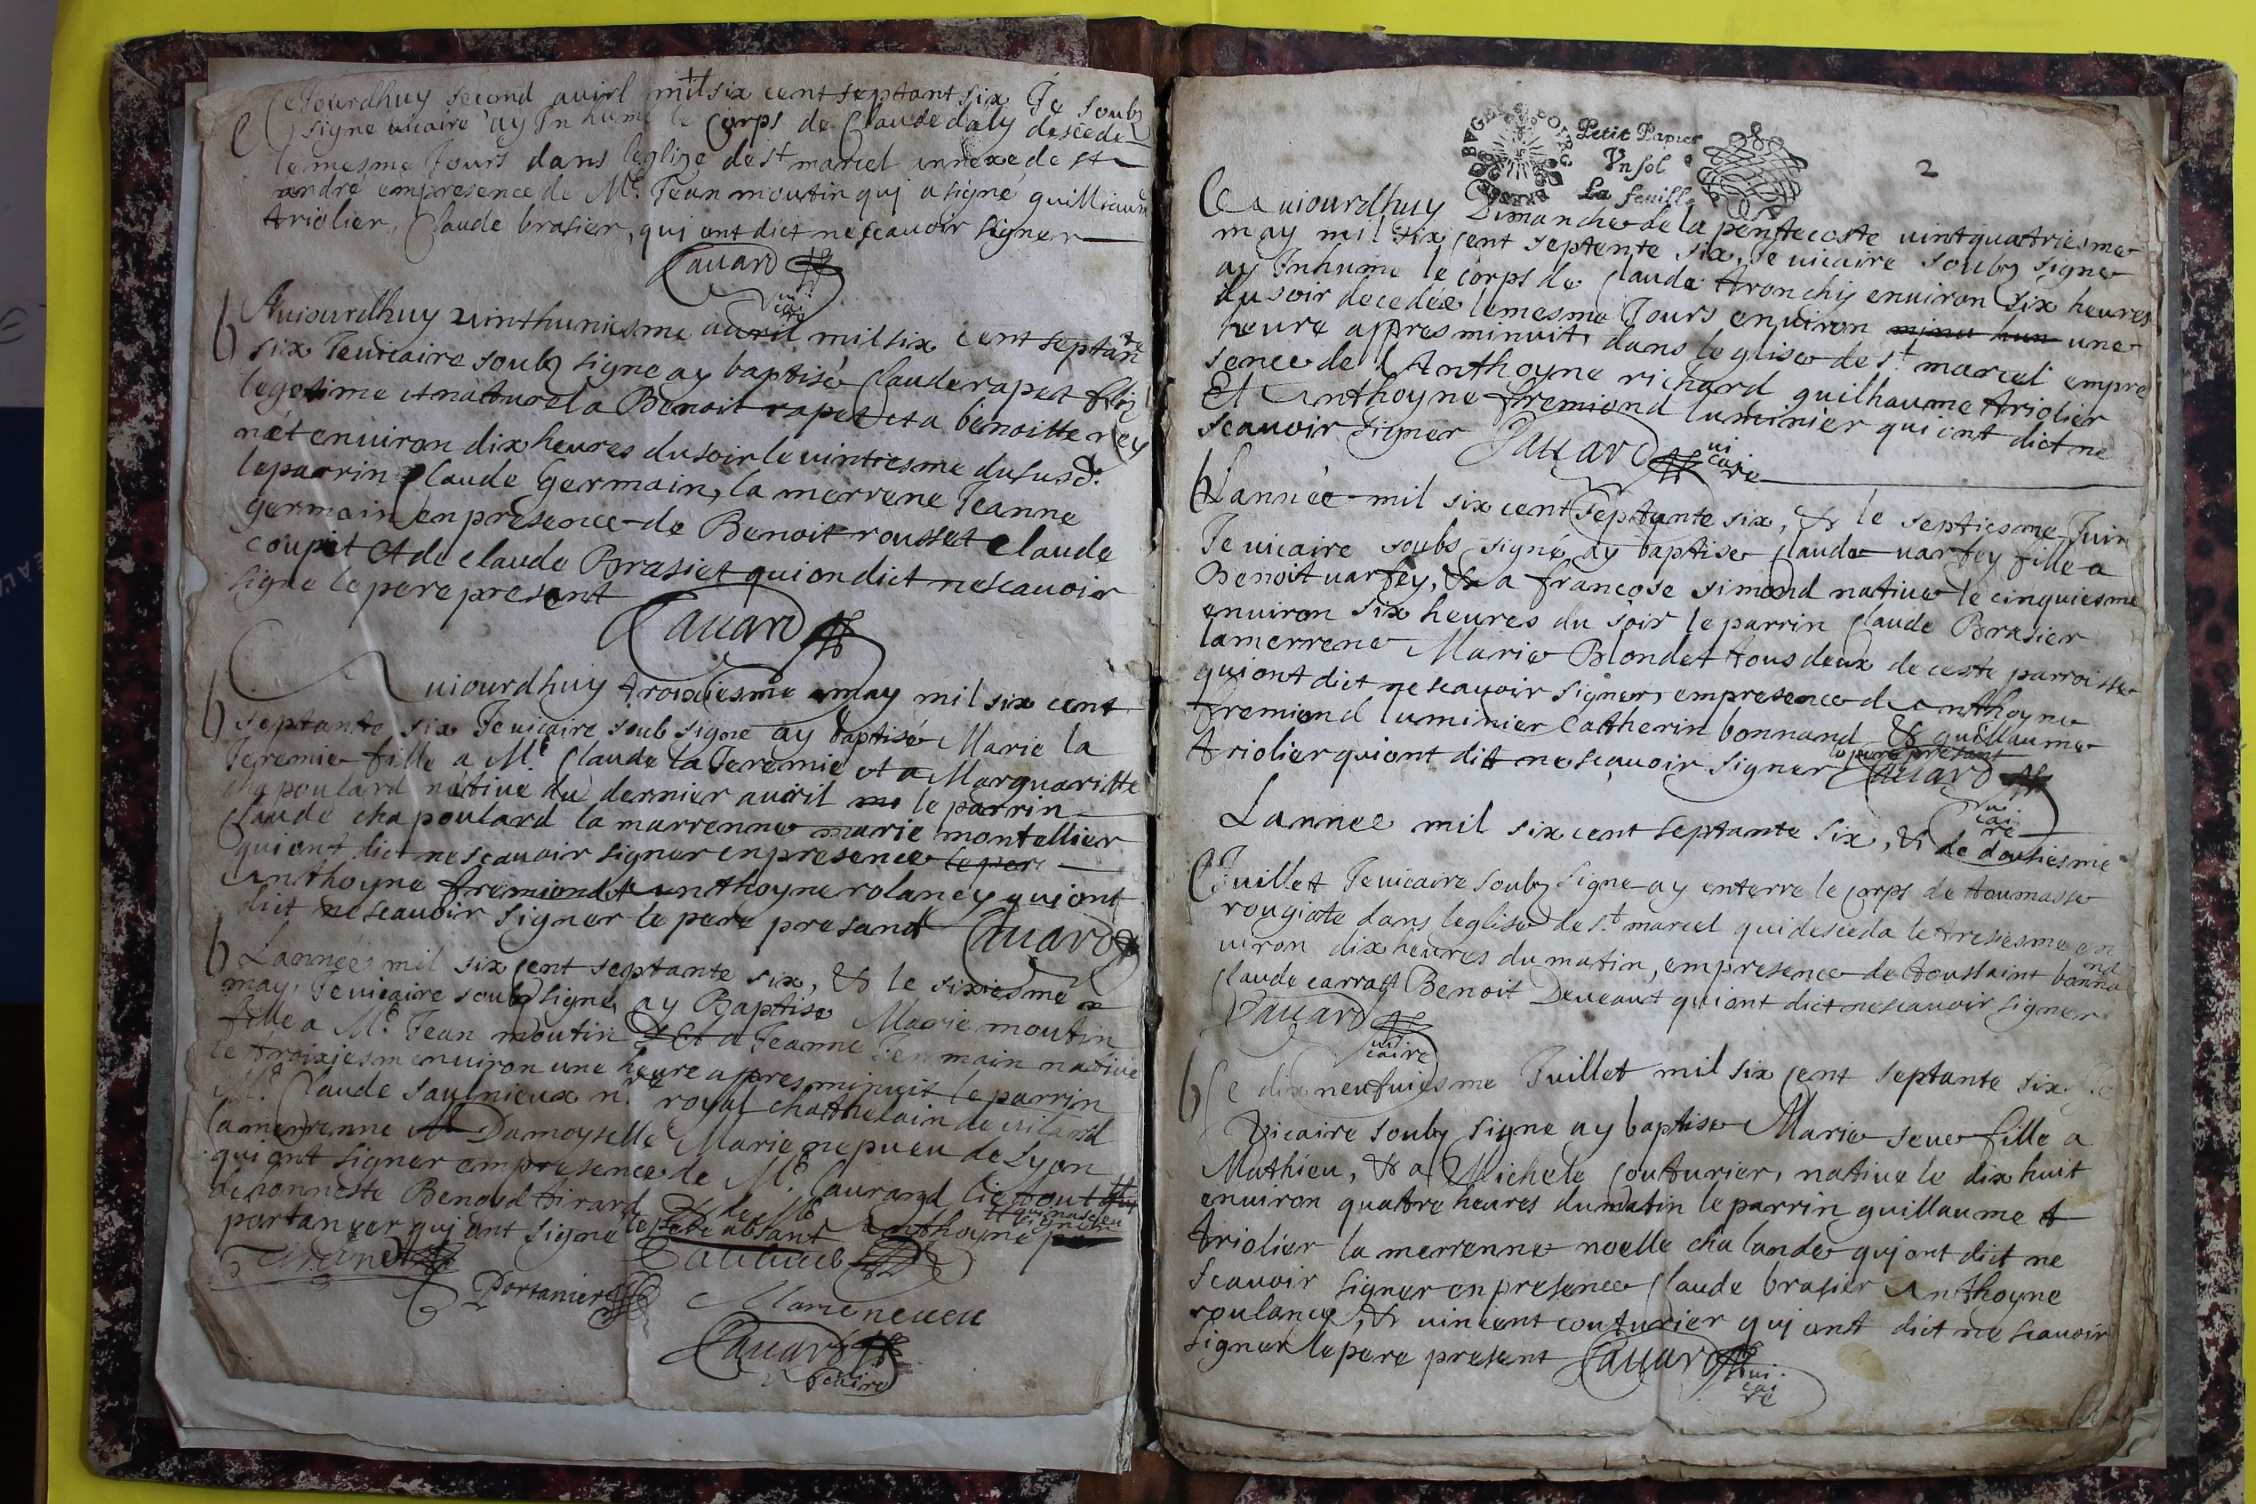 Cejourdhuy second auiril mil six cent septant six Je soubz
signe uicaire ay Inhume le Corps de Claude daly descede
le mesme Jours dans leglize de st marcel annexe de st
andre empresence de Mr. Jean moutin qui a signé guilliaum
triolier, Claude brasier, qui ont dict ne scauoir signer
Cauard
uicaire
b Auiourdhuy uinthuniesme auril mil six cent septante
six Je uicaire soubz signe ay baptisé Claude rapet filz
legetime et naturel a Benoit rapet et a benoitte rey
nét enuiron dix heures du soir le uintiesme du susd.
le parrin Claude Germain, la merrene Jeanne
germain en presence de Benoit rousset Claude
coupet et de Claude Brasier qui on dict ne scauoir
signe le pere present
Cauard
b Auiourdhuy troixiesme may mil six cent
septante six Je uicaire soub signe ay baptisé Marie la
Jeremie fille a Mr Claude la Jeremie et a Marguaritte
chapoulard natiue du dernier auiril le parrin
Claude chapoulard la marrenne marie montellier
qui ont dict ne scauoir signer en presence le pere
Anthoyne fremiond et anthoyne rolancy qui ont
dict ne scauoir signer le pere presant Cauard
b Lannéé mil six cent septante six, & le sixiesme
may, Je uicaire soub signe, ay Baptise Marie moutin
fille a Mr. Jean moutin Et a Jeanne Germain natiue
le troixjesm enuiron une heure appres minuit le parrin
Mr. Claude saulnieux nre royal chatthelain de uilard
la merrenne Damoyselle Marie nepueu de Lyon
qui ont signer empresence de Mr. Laurand
de honneste Benoid tirard & de Mr Anthoyne
portanyer qui ont signe le pere absant
Portanier
Marie neueu
Cauard
uicaire
BUGEY BOURG BRESSE
Petit Papier
Vn sol
La feuille
2
Ce auiourdhuy Dimanche de la pentecoste uintquatriesme
may mil six cent septente six, Je uicaire soubz signe
ay Inhume le corps de Claude tronchy enuiron six heures
du soir decedéé le mesme Jours enuiron une
heure appres minuit, dans leglise de st marcel empre
sence de Anthoyne richard guilhaume triolier
Et Anthoyne fremiond luminier qui ont dict ne
scauoir signer Cauard uicaire
b Lannéé mil six cent septante six, & le septiesme Juin
Je uicaire soubs signé ay baptise Claude uarfey fille a
Benoit uarfey, & a francose simond natiue le cinquiesme
enuiron six heures du soir le parrin Claude Brasier
la merrene Marie Blondet tous deux de ceste parroisse
qui ont dict ne scauoir signer, empresence de anthoyne
fremiond luminier Catherin bonnand & guillaume
triolier qui ont dit ne scauoir signer le pere present
Cauard
uicaire
Lannee mil six cent septante six, & le dousiesme
Juillet Je uicaire soubz signe ay enterre le corps de toumasse
rougiate dans leglise de st. marcel qui desceda le tresiesme en
uiron dix heures du matin, empresence de toussaint bonnand
Claude carrast Benoit Deueaux qui ont dict ne scauoir signer
Cauard
uicaire
b Ce dix neufuiesme Juillet mil six cent septante six Je
Vicaire soubz signe ay baptise Marie seue fille a
Mathieu, & a Michele Couturier, natiue le dix huit
enuiron quatre heures du matin le parrin guillaume t
triolier la merrenne noelle chalande qui ont dict ne
scauoir signer en presence Claude brasier Anthoyne
roulance, & uincent couturier qui ont dict ne scauoir
signer le pere present Cauard
uicaire